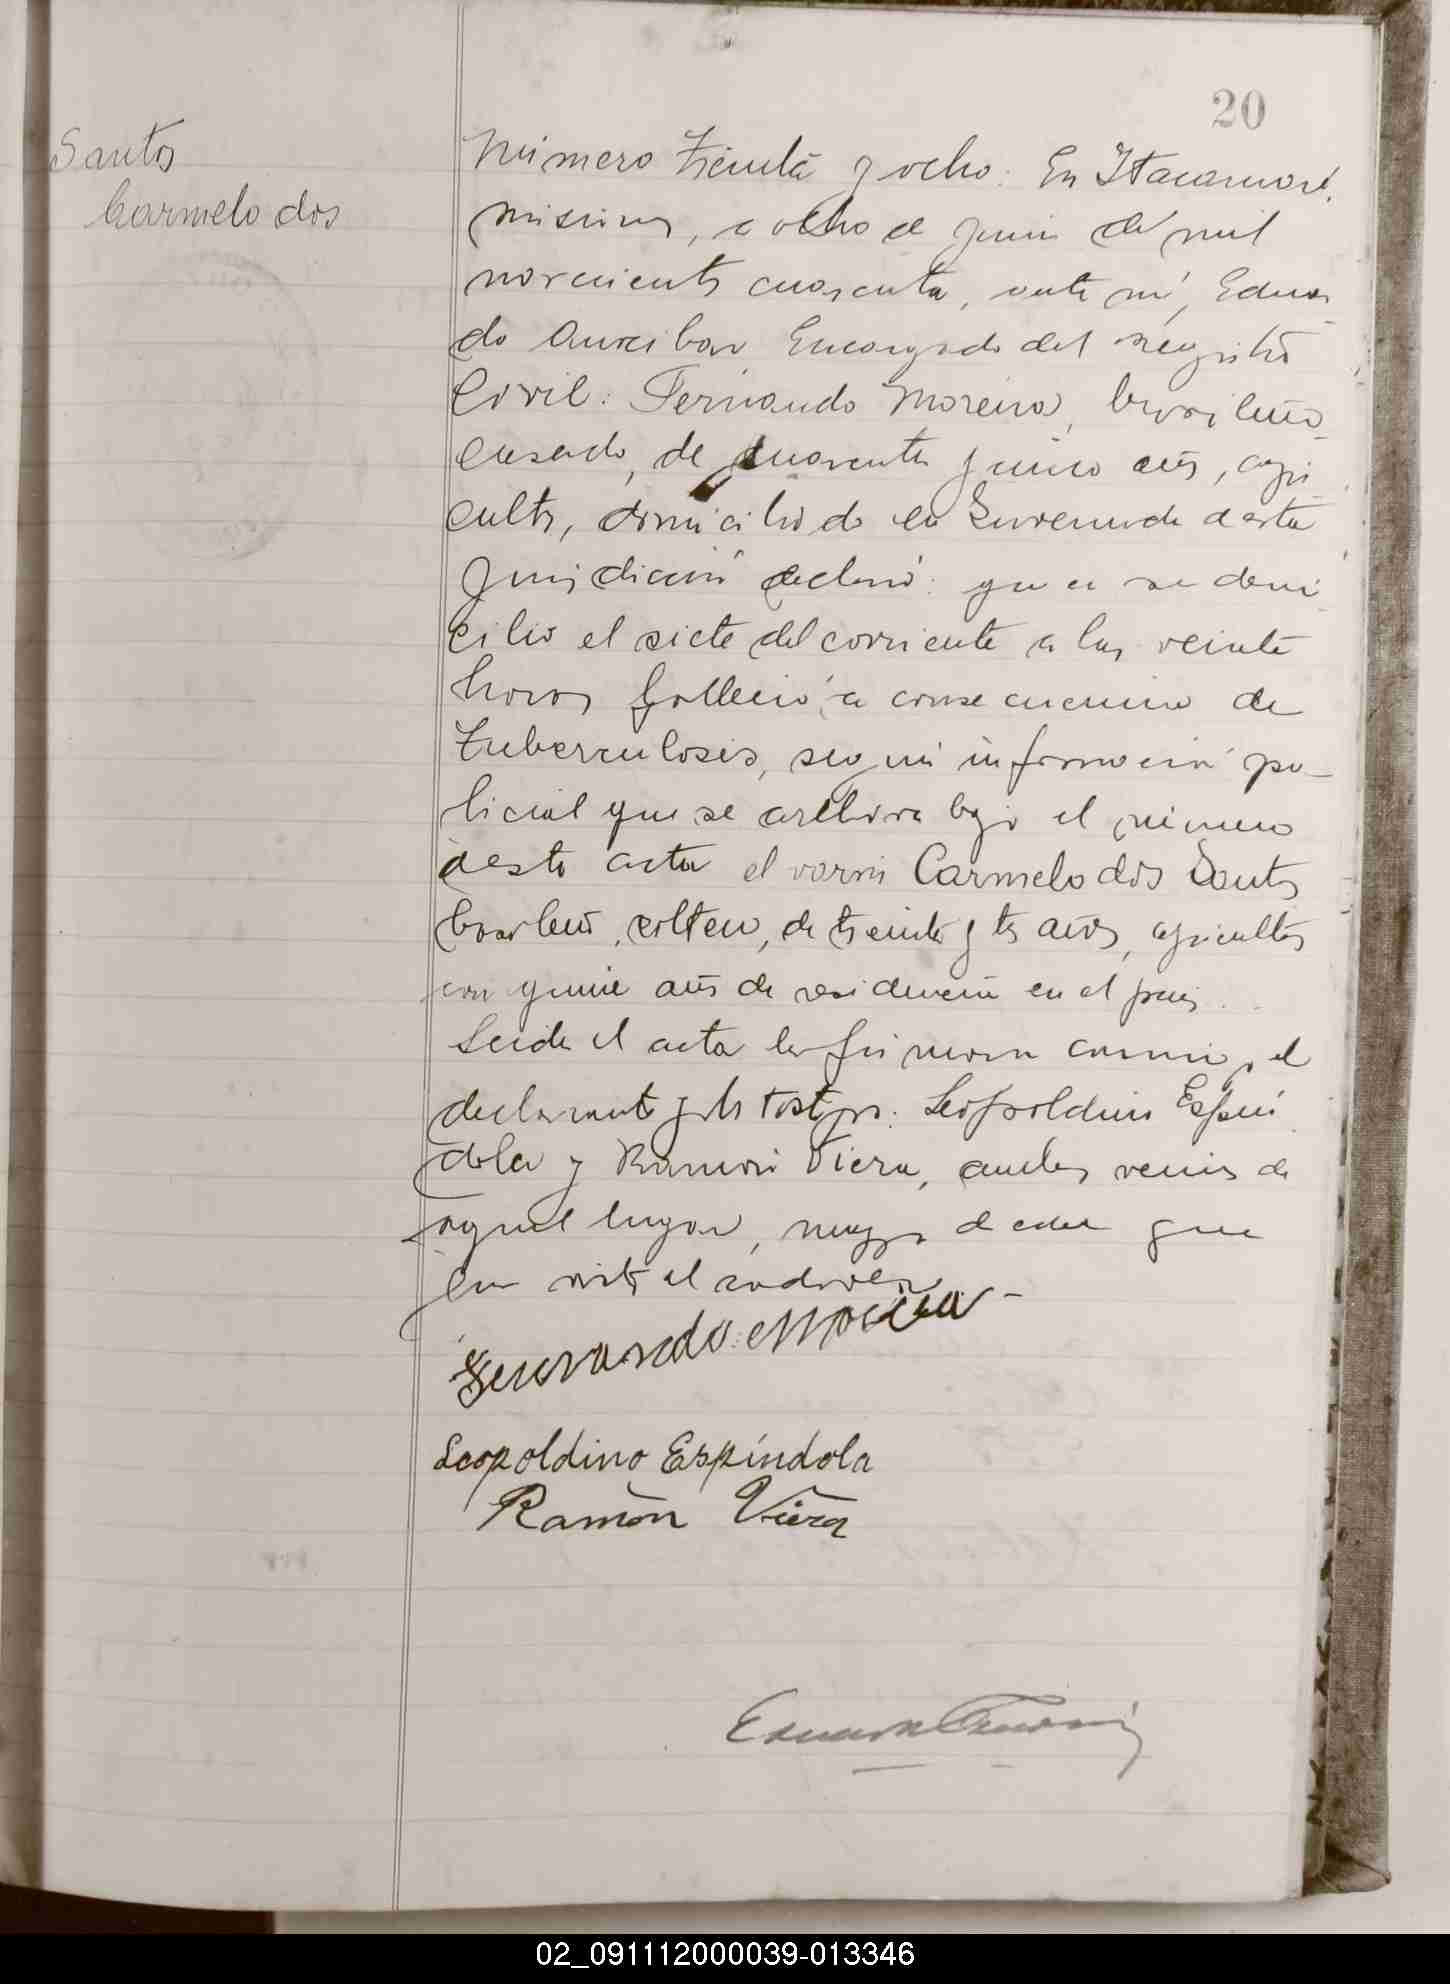 20
Santos
Carmelo dos
Número treinta y ocho: En Itacaruaré,
Misiones, a ocho de junio de mil
novecientos cuarenta, ante mí, Eduar
do Encargado del Registro
Civil: Fernando Moreira, brasileño
casado, de cuarenta y cinco años, agri
cultor, domiciliado en de esta
jurisdicción declaró: que en su domi
cilio el siete del corriente a las veinte
horas falleció a consecuencia de
tuberculosis, según información po-
licial que se archiva bajo el número
de esta acta el varón Carmelo dos Santos
brasileño, soltero, de treinta y tres años, agricultor
con quince años de residencia en el país.
Leida el acta la firmaron conmigo, el
declarante y los testigos: Leopoldino Espín
dola y Ramón Viera, ambos vecinos de
aquel lugar, mayores de edad que
han visto el cadáver -
Fernando Moreira
Leopoldino Espíndola
Ramón Viera
02_091112000039-013346